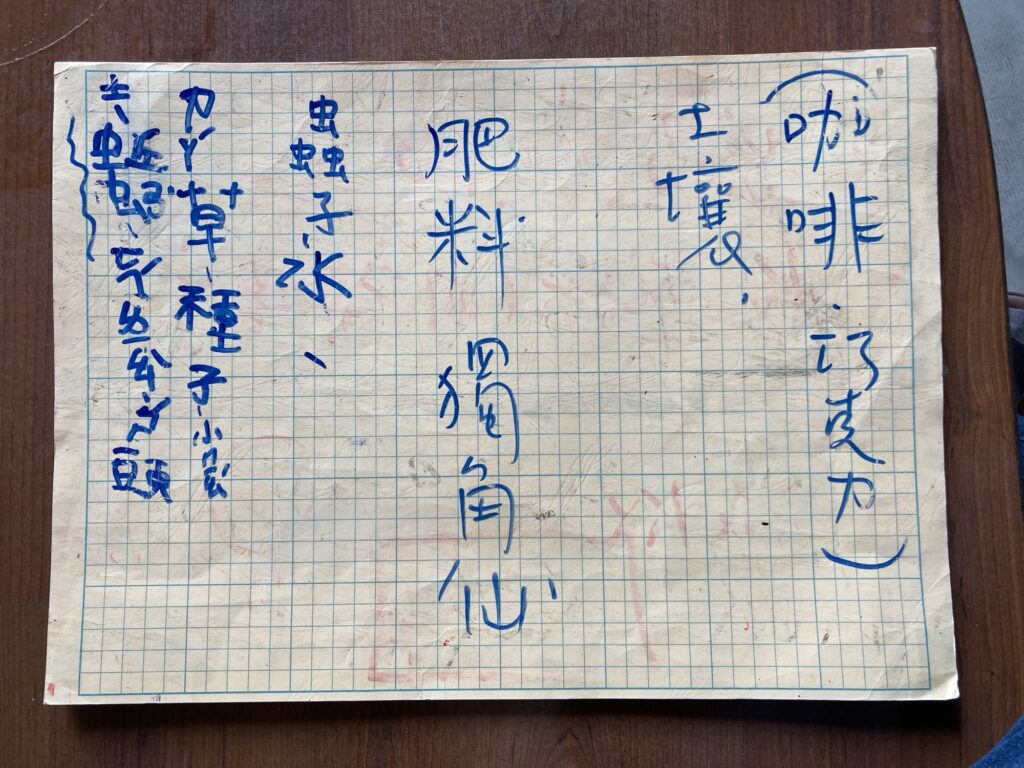 (咖啡.巧克力)
土壤、
肥料 獨角仙
蟲子水、
ㄉㄚ草、種子、小
土、蚯蚓、頭